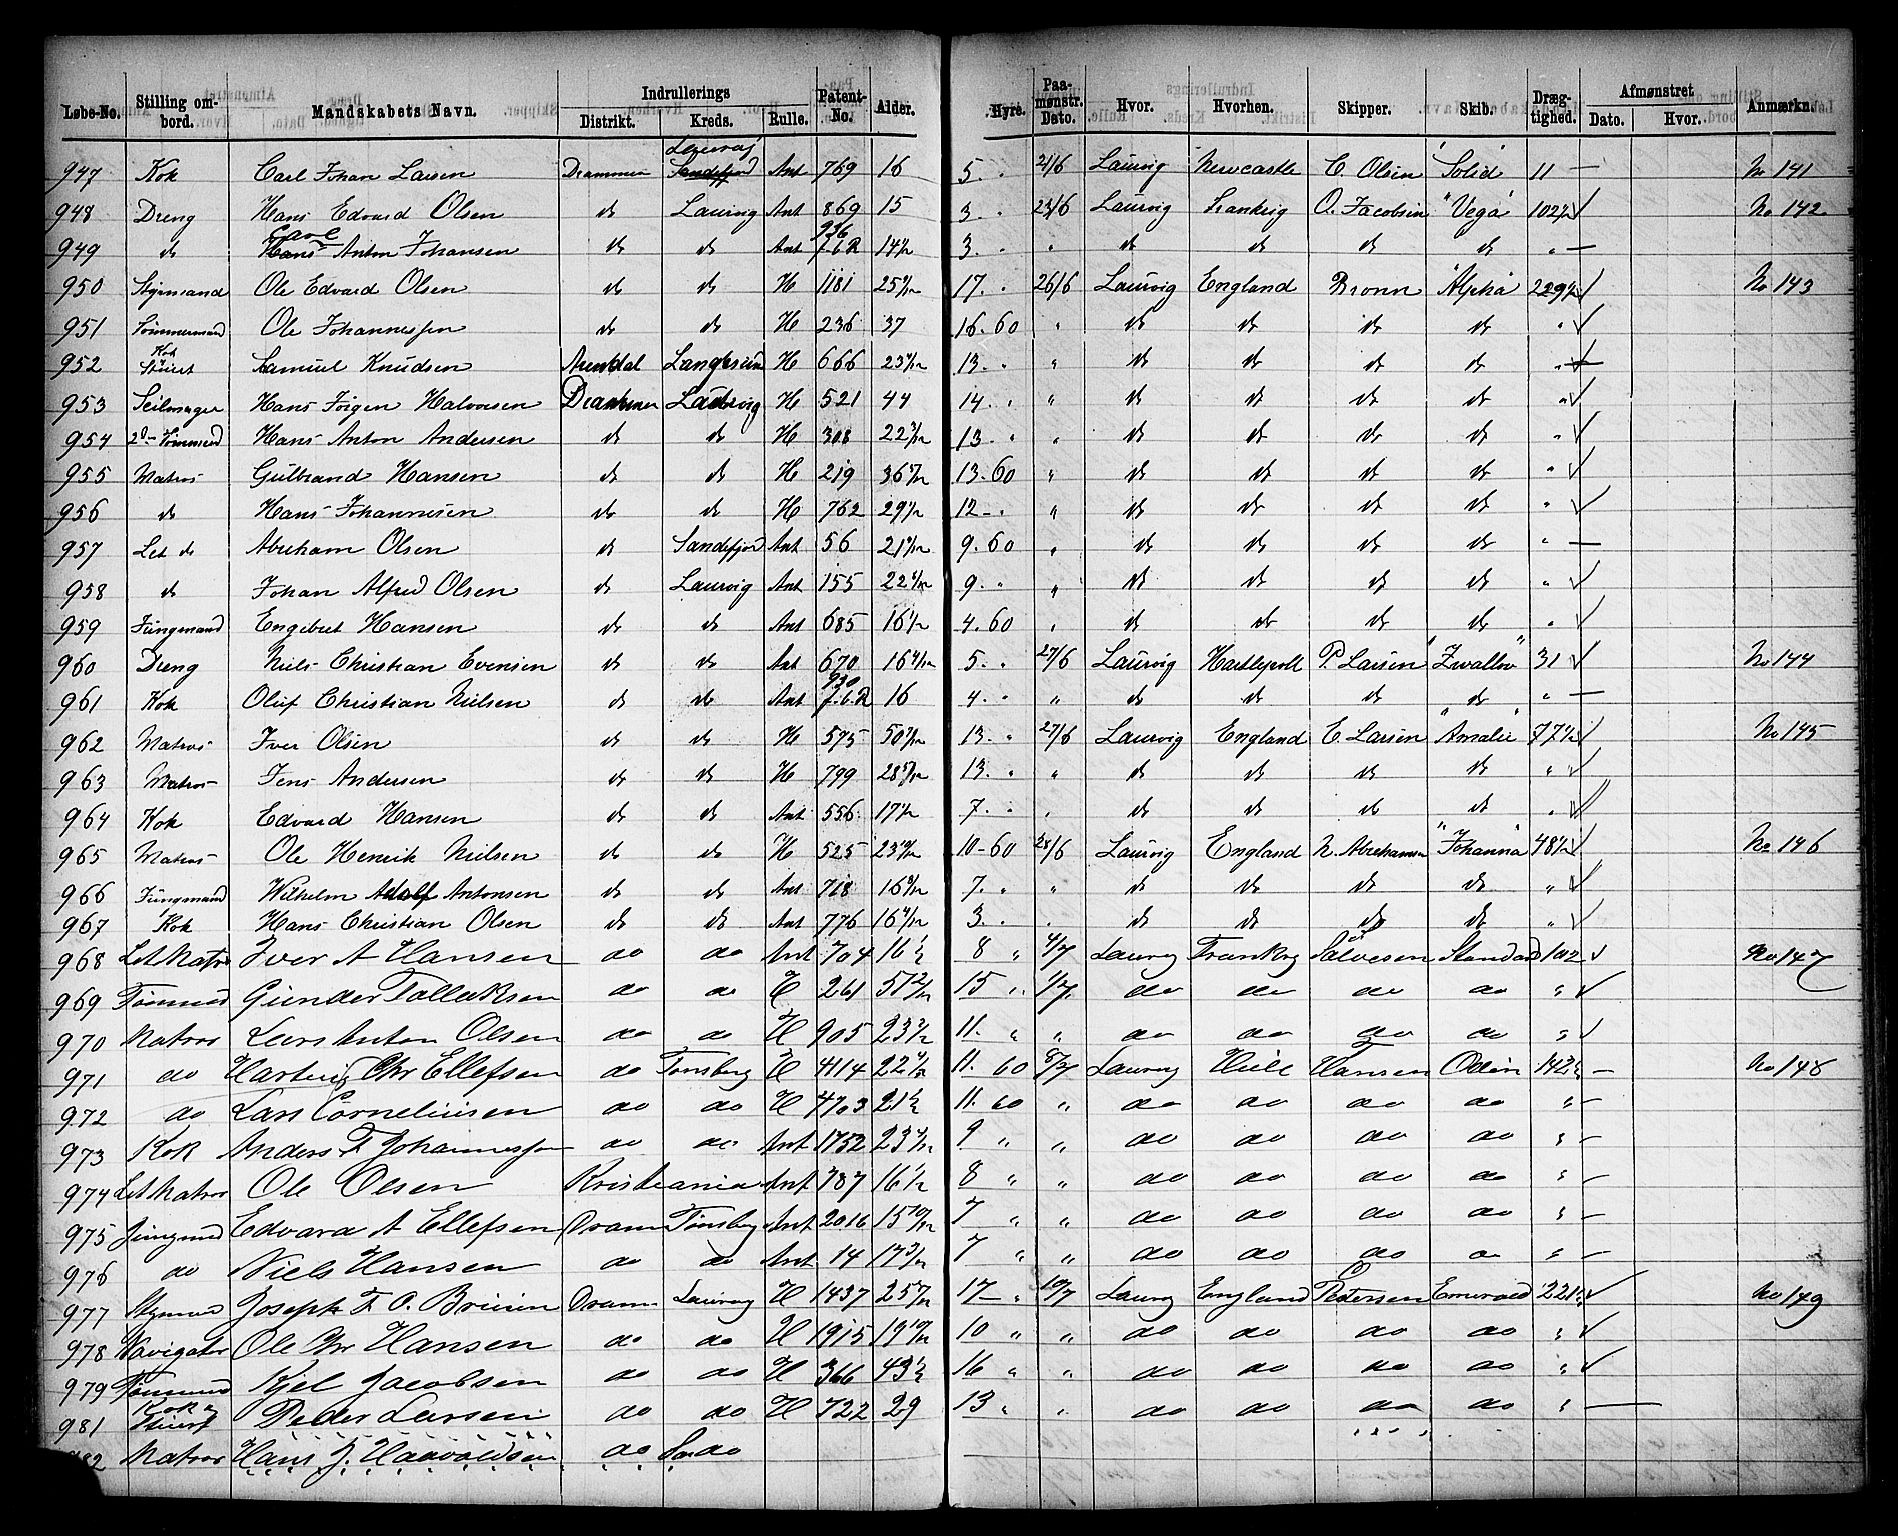 Løbe-No. Stilling ombord. Mandskabets Navn. Indrullerings Distrikt. Kreds. Rulle. Patent-No. Alder. Hyre. Paamønstr. Dato. Hvor. Hvorhen. Skipper. Skib. Drægtighed. Afmønstret Dato. Hvor. Anmærkn.
947 Kok Carl Johan Larsen Drammen Laurvig Sandefjord Ant 769 16 5. " 21/6 Laurvig Newcastle C. Olsen "Solid" 11 — No 141
948 Dreng Hans Edvard Olsen do Laurvig Ant 869 15 3 " 23/6 Laurvig O. Jacobsen "Vega" 102½ ✓ No 142
949 do Carl Hans Anton Johansen do do Ant 936 f. 6 R 3. " do do do do " —
950 Styrmand Ole Edvard Olsen do do H 1181 17. " 26/6 Laurvig England Bronn "Alpha" 229½ ✓ No 143
951 Tømmermand Ole Johannessen do do H 236 37 16. 60 " do do do do " ✓
952 Kok Stuert Samuel Knudsen Arendal Langesund H 666 13. " " do do do do "
953 Seilmager Hans Jörgen Halvorsen Drammen Laurvig H 521 44 14. " " do do do do " ✓
954 2d Tømmermd Hans Anton Andersen do do H 308 13 " " do do do do " ✓
955 Matros Gulbrand Hansen do do H 219 13. 60 " do do do do " ✓
956 do Hans Johannesen do do H 762 12 — " " do do do do " ✓
957 Let do Abraham Olsen do Sandefjord Ant 56 9. 60 " do do do do " —
958 do Johan Alfred Olsen do Laurvig Ant 155 9. " " do do do do " ✓
959 Jungmand Engebret Hansen do do Ant 685 16½ 4. 60 " do do do do " ✓
960 Dreng Niels Christian Evensen do do Ant 670 5. " 27/6 Laurvig Hartlepool P. Larsen "Zvallov" 31 ✓ No 144
961 Kok Oluf Christian Nielsen do do Ant 930 f. 6 R 16 4. " " do do do do " —
962 Matros Iver Olsen do do H 575 13. " 27/6 Laurvig England E. Larsen "Amalie" 77½ ✓ No 145
963 Matros Jens Andersen do do H 799 13. " " do do do do " ✓
964 Kok Edvard Hansen do do Ant 556 17½ 7. " " do do do do " ✓
965 Matros Ole Henrik Nielsen do do H 525 10-60 28/6 Laurvig England N. Abrahamsen "Johanna" 48½ ✓ No 146
966 Jungmand Wilhelm Adolf Antonsen do do Ant 718 7. " " do do do do " ✓
967 Kok Hans Christian Olsen do do Ant 776 3. " " do do do do " ✓
968 Let Matros Iver A Hansen do do Ant 704 16½ 8 " 4/7 Laurvig Frankrig Salvesen Standard 102 ✓ No 147
969 Tømmd Gunder Tallaksen do do H 261 15 " 4/7 do do do do " ✓
970 Matros Lars Anton Olsen do do H 905 11. " " do do do do " ✓
971 do Hartvig Chr Ellefsen do Tønsberg H 4114 11. 60 8/7 Laurvig Hull Hansen Odin 142½ — No 148
972 do Lars Cornelinsen do do H 4703 21½ 11. 60 " do do do do " —
973 Kok Anders F Johannessen do do Ant 1752 9 " " do do do do " —
974 Let Matros Ole Olsen Kristiania Ant 787 16½ 8 " " do do do do " —
975 Jungmd Edvard A Ellefsen Dram Tønsberg Ant 2016 7 " " do do do do " —
976 do Niels Hansen do do Ant 14 7 " " do do do do " —
977 Styrmd Joseph F. O. Bruun Dram Laurvig H 1437 17 — " 10/7 Laurvig England Petersen Emerald 221½ ✓ No 149
978 Navigatør Ole Chr Hansen do do H 1915 10 " " do do do do " ✓
979 Tømmermd Kjel Jacobsen do do H 366 43½ 16 " " do do do do " ✓
981 Kok & Stuert Peder Larsen do do H 722 29 13 " " do do do do " —
982 Matros Hans J. Haavoldsen do do